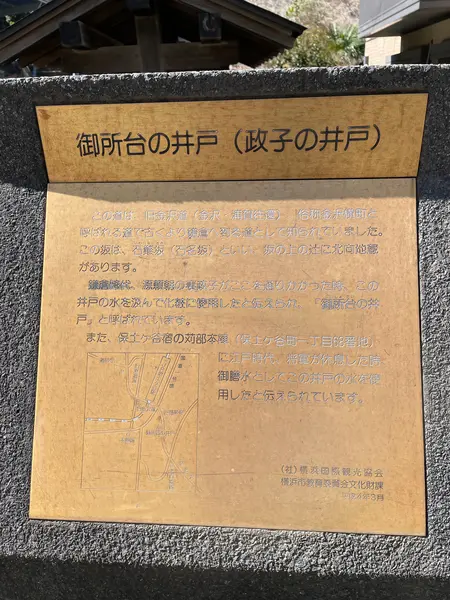 御所台の井戸（政子の井戸）
この道は、旧金沢道（金沢・浦賀往還）、俗称金沢横町と
呼ばれる道で古くより鎌倉への
道として知られていました。
この坂は、石難坂（石名坂）といい、坂の上の辻に北向地蔵
があります。
鎌倉時代、源頼朝の妻政子がここを通りかかった時、この
井戸の水を汲んで化粧に使用したと伝えられ、「御所台の井
戸」と呼ばれています。
また、保土ヶ谷宿の苅部本陣（保土ケ谷町一丁目68番地）
に江戸時代、将軍が休息した時
御膳水としてこの井戸の水を使
用したと伝えられています。
（社）横浜国際観光協会
横浜市教育委員会文化財課
平成4年3月